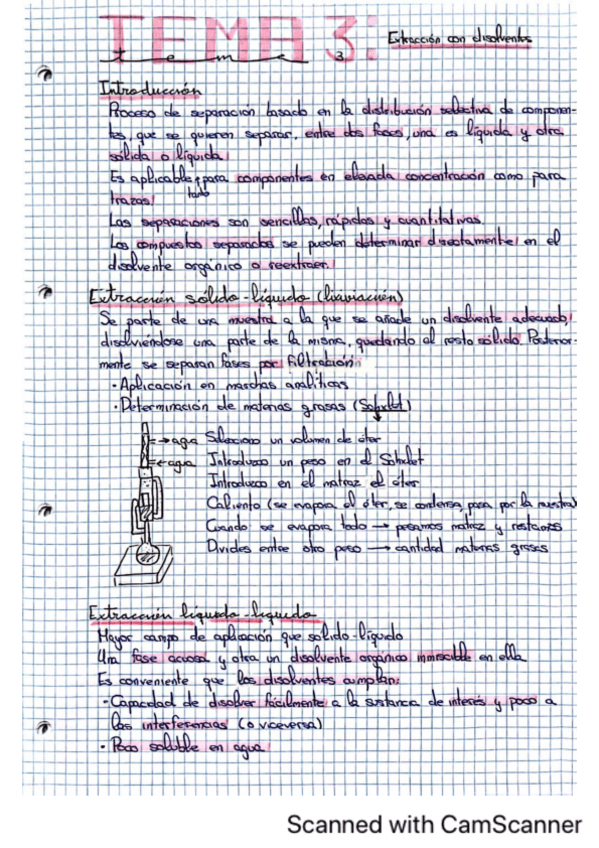 TEMA 3:
tema 3
Extracción con disolventes
Introducción
Proceso de separación basado en la distribución selectiva de componen-
tes, que se quieren separar, entre dos fases, una es líquida y otra
sólida o líquida.
Es aplicable tanto para componentes en elevada concentración como para
trazas.
Las separaciones son sencillas, rápidas y cuantitativas.
Los compuestos separados se pueden determinar directamente en el
disolvente orgánico o reextraer.
Extracción sólido-líquido (lixiviación)
Se parte de una muestra a la que se añade un disolvente adecuado,
disolviéndose una parte de la misma, quedando el resto sólido. Posterior-
mente se separan fases por filtración.
· Aplicación en marchas analíticas
· Determinación de materias grasas (Sohxlet)
→agua
←agua
Selecciono un volumen de éter
Introduzco un peso en el Sohxlet
Introduzco en el matraz el éter
Caliento (se evapora el éter, se condensa, pasa por la muestra)
Cuando se evapora todo → pesamos matraz y restamos
Divides entre otro peso → cantidad materias grasas
Extracción líquido-líquido
Mayor campo de aplicación que sólido-líquido
Una fase acuosa y otra un disolvente orgánico inmiscible en ella
Es conveniente que los disolventes cumplan:
- Capacidad de disolver fácilmente a la sustancia de interés y poco a
las interferencias (o viceversa)
· Poco soluble en agua
Scanned with CamScanner